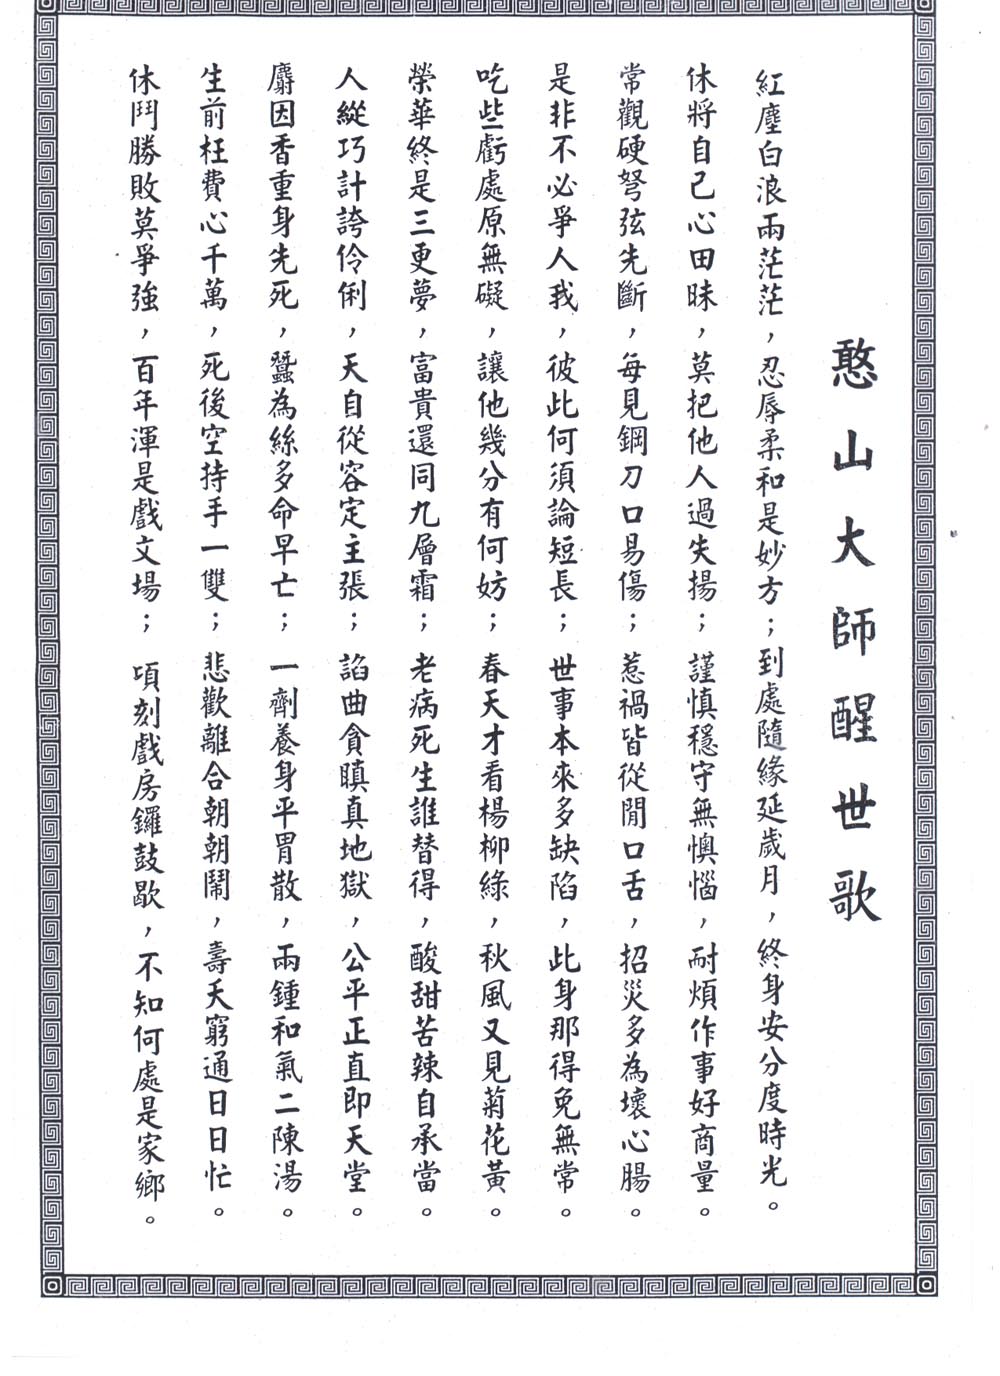 憨山大師醒世歌
紅塵白浪兩茫茫，忍辱柔和是妙方；到處隨緣延歲月，終身安分度時光。
休將自己心田昧，莫把他人過失揚；謹慎穩守無懊惱，耐煩作事好商量。
常觀硬弩弦先斷，每見鋼刀口易傷；惹禍皆從閒口舌，招災多為壞心腸。
是非不必爭人我，彼此何須論短長；世事本來多缺陷，此身那得免無常。
吃些虧處原無礙，讓他幾分有何妨；春天才看楊柳綠，秋風又見菊花黃。
榮華終是三更夢，富貴還同九層霜；老病死生誰替得，酸甜苦辣自承當。
人縱巧計誇伶俐，天自從容定主張；諂曲貪瞋真地獄，公平正直即天堂。
麝因香重身先死，蠶為絲多命早亡；一劑養身平胃散，兩鍾和氣二陳湯。
生前枉費心千萬，死後空持手一雙；悲歡離合朝朝鬧，壽夭窮通日日忙。
休鬥勝敗莫爭強，百年渾是戲文場；項刻戲房鑼鼓歇，不知何處是家鄉。